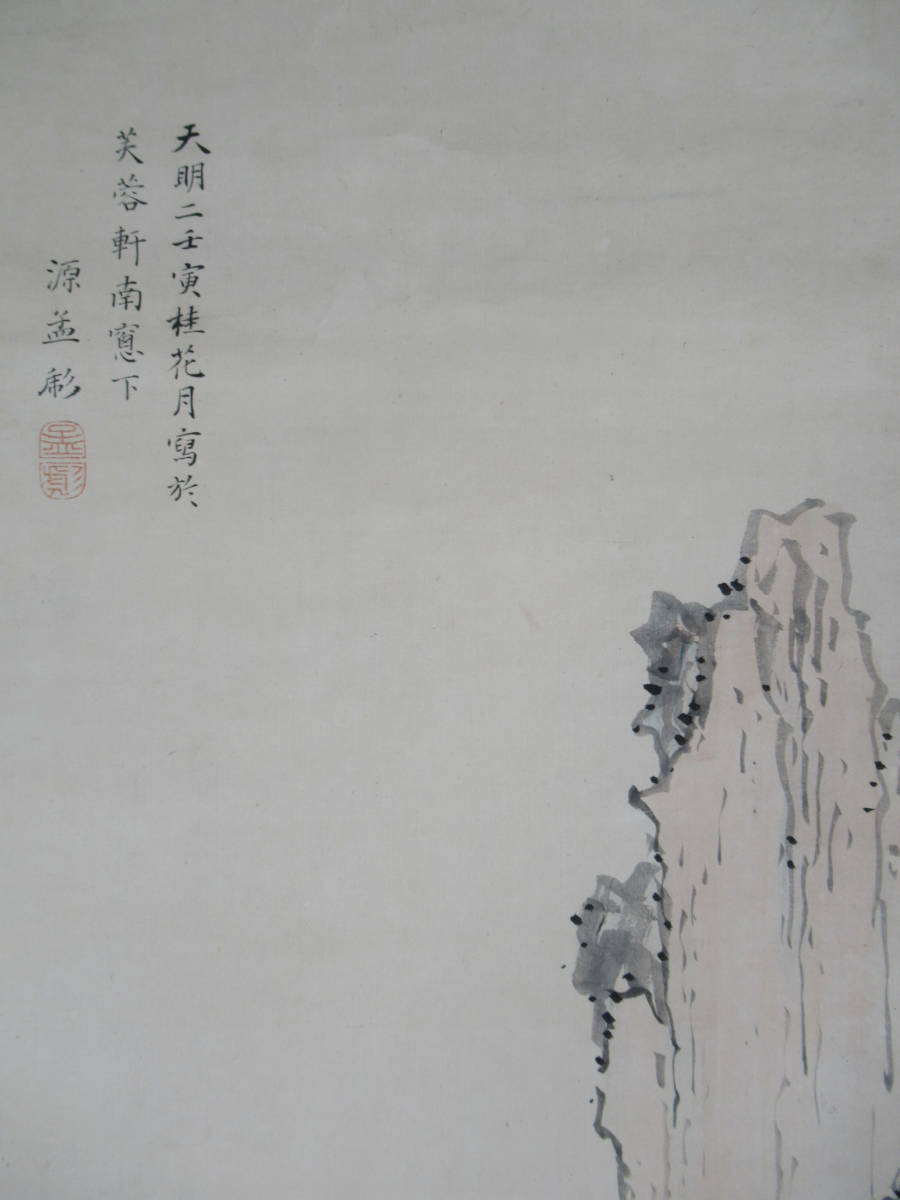 天明二壬寅桂花月寫於
芙蓉軒南窻下
源孟彪
孟彪